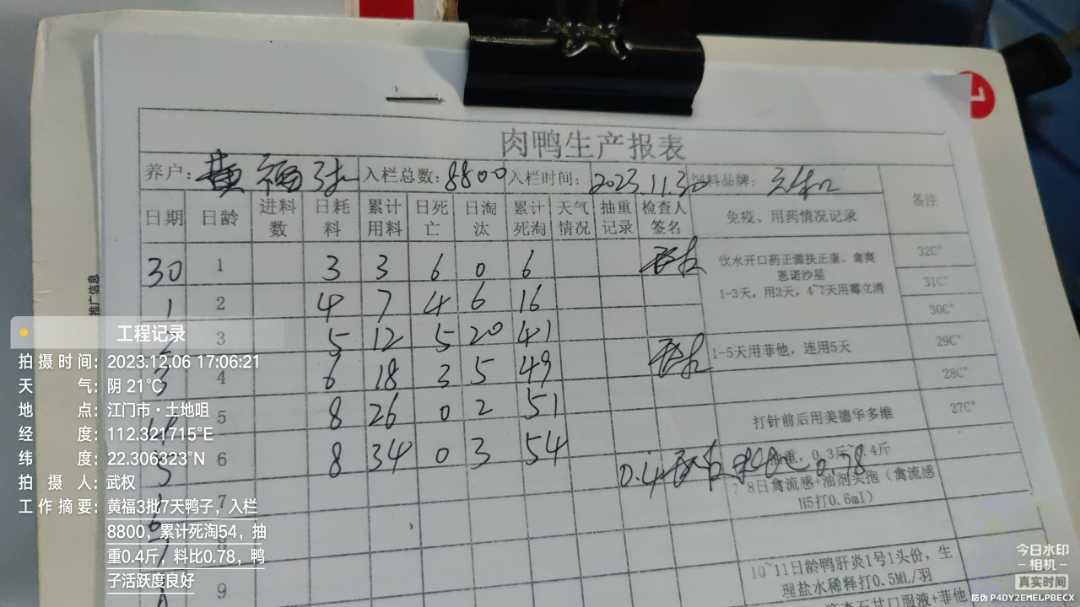 肉鸭生产报表
养户：黄福 入栏总数：8800 入栏时间：2023.11.30 饲料品牌：
日期 日龄 进料数 日耗料 累计用料 日死亡 日淘汰 累计死淘 天气情况 抽重记录 检查人签名 免疫、用药情况记录 备注
30 1 3 3 6 0 6 32C°
饮水开口药正灞扶正康、禽爽
恩诺沙星
1 2 4 7 4 6 16 31C°
1-3天，用2天，4~7天用霉立清
30C°
3 5 12 5 20 41 29C°
1-5天用菲他，连用5天
3 4 6 18 3 5 49 28C°
5 8 26 0 2 51 27C°
打针前后用美德华多维
5 6 8 34 0 3 54
0.4 0.78
7 8日禽流感+油剂头孢（禽流感
H5打0.6ml）
6 7
7
9
10~11日龄鸭肝炎1号1头份，生
理盐水稀释打0.5ML/羽
口服液+菲他
推广信息
工程记录
拍摄时间：2023.12.06 17:06:21
天气：阴 21℃
地点：江门市·土地咀
经度：112.321715°E
纬度：22.306323°N
拍摄人：武权
工作摘要：黄福3批7天鸭子，入栏
8800，累计死淘54，抽
重0.4斤，料比0.78，鸭
子活跃度良好
今日水印
-相机-
真实时间
防伪 P4DY2EMELPBECX